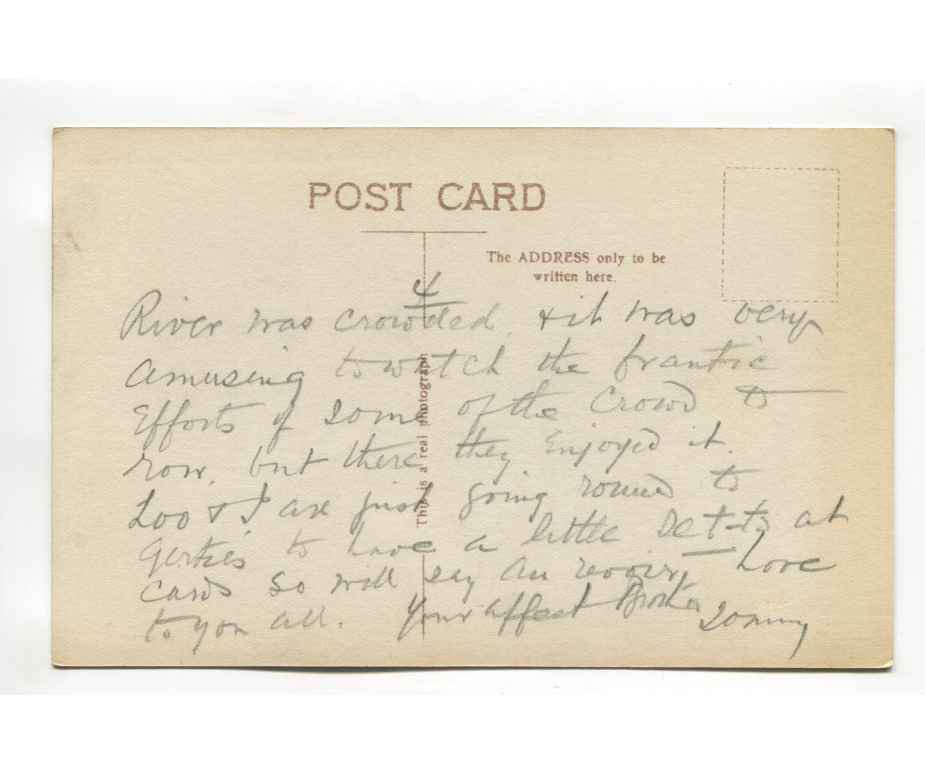 POST CARD
The ADDRESS only to be
written here.
This is a real photograph
4
River was crowded, & it was very
amusing to watch the frantic
Efforts of some of the Crowd to
row, but there they Enjoyed it.
Loo & I are just going round to
Gerties to have a little at
cards so will say Au revoir, Love
to you all. Your affect Brother Tommy